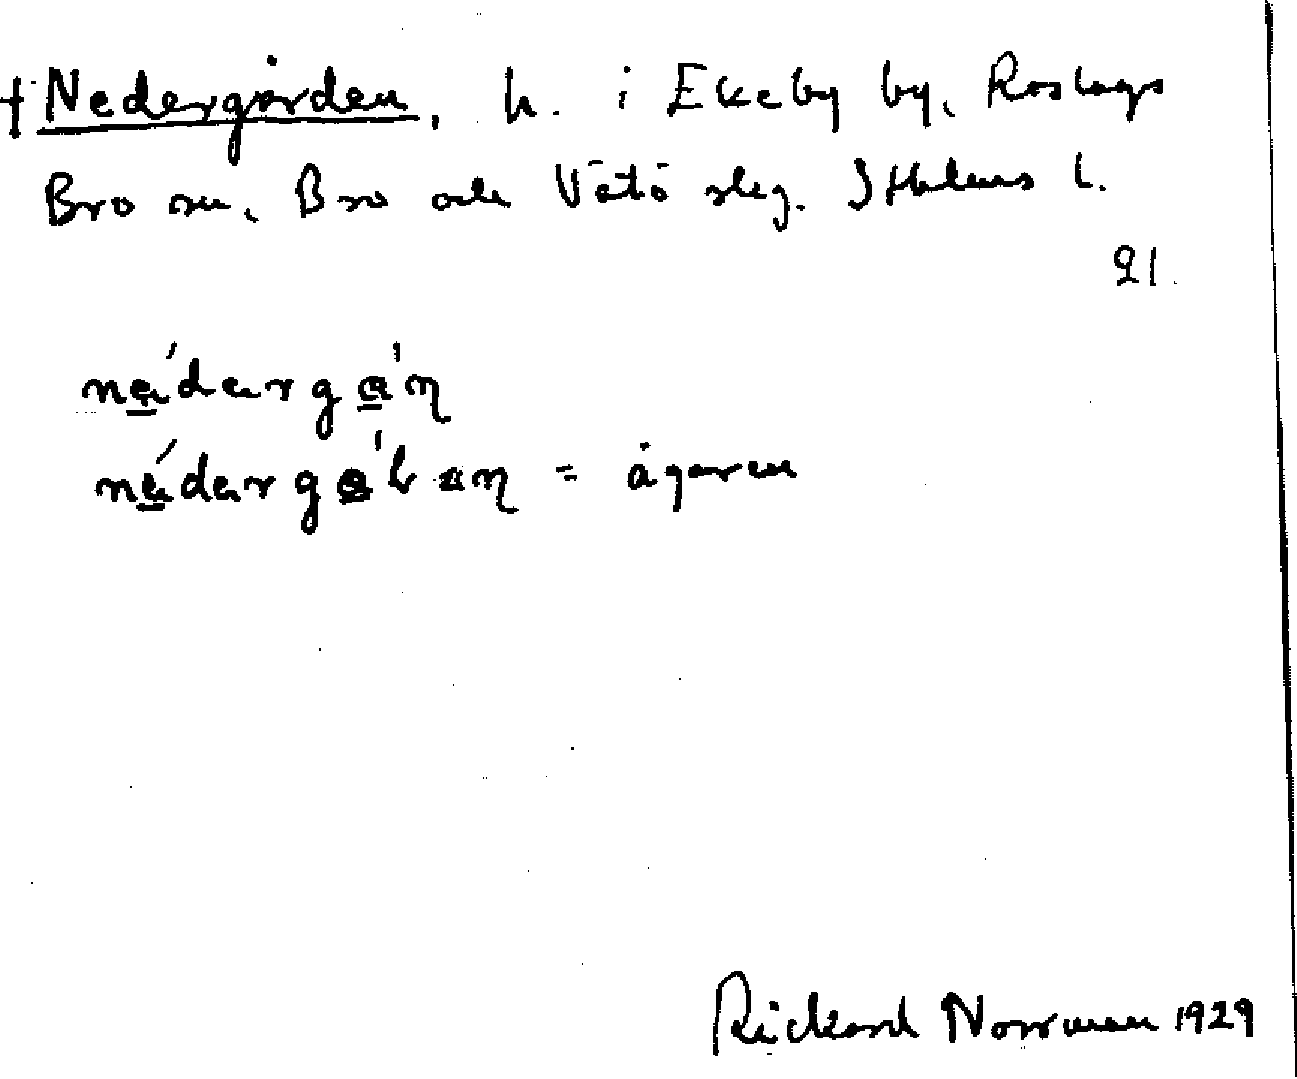 † Nedergården, h. i Ekeby by, Roslags
Bro sn, Bro och Vätö skeg. Sthlms l.
21.
= ägaren
Rickard Norrman 1929